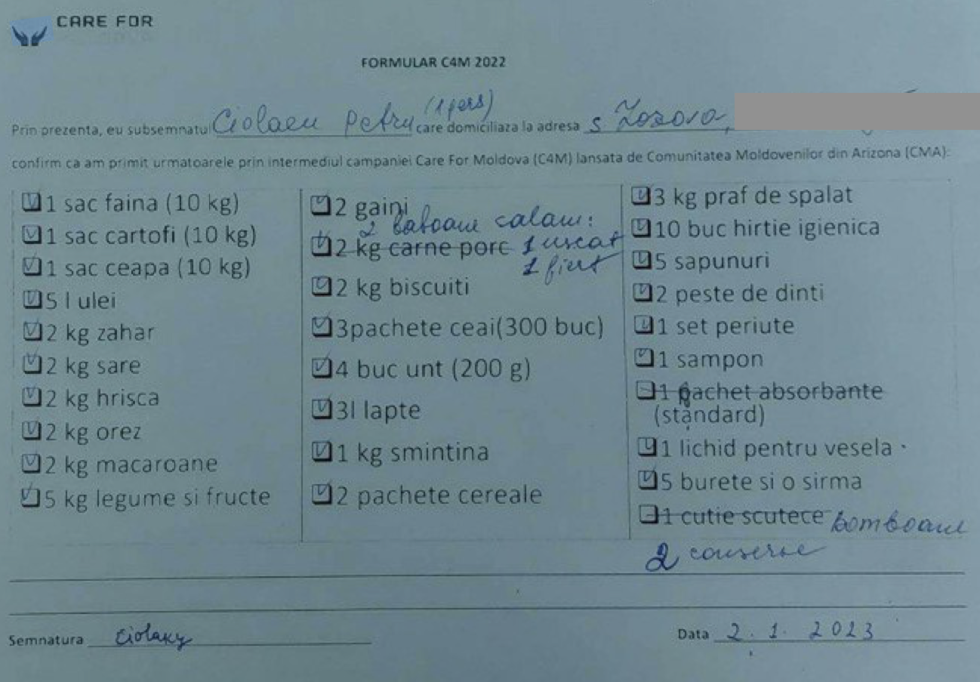 CARE FOR
FORMULAR C4M 2022
(1 pers)
Prin prezenta, eu subsemnatul Ciolacu Petru care domiciliaza la adresa s Zozova,
confirm ca am primit urmatoarele prin intermediul campaniei Care For Moldova (C4M) lansata de Comunitatea Moldovenilor din Arizona (CMA):
1 sac faina (10 kg)
1 sac cartofi (10 kg)
1 sac ceapa (10 kg)
5 l ulei
2 kg zahar
2 kg sare
2 kg hrisca
2 kg orez
2 kg macaroane
5 kg legume si fructe
2 gaini
2 batoane salam:
2 kg carne porc 1 uscat
1 fiert
2 kg biscuiti
3pachete ceai(300 buc)
4 buc unt (200 g)
3l lapte
1 kg smintina
2 pachete cereale
3 kg praf de spalat
10 buc hirtie igienica
5 sapunuri
2 peste de dinti
1 set periute
1 sampon
1 pachet absorbante
(standard)
1 lichid pentru vesela
5 burete si o sirma
1 cutie scutece bomboane
2 conserve
Semnatura
Data 2.1.2023